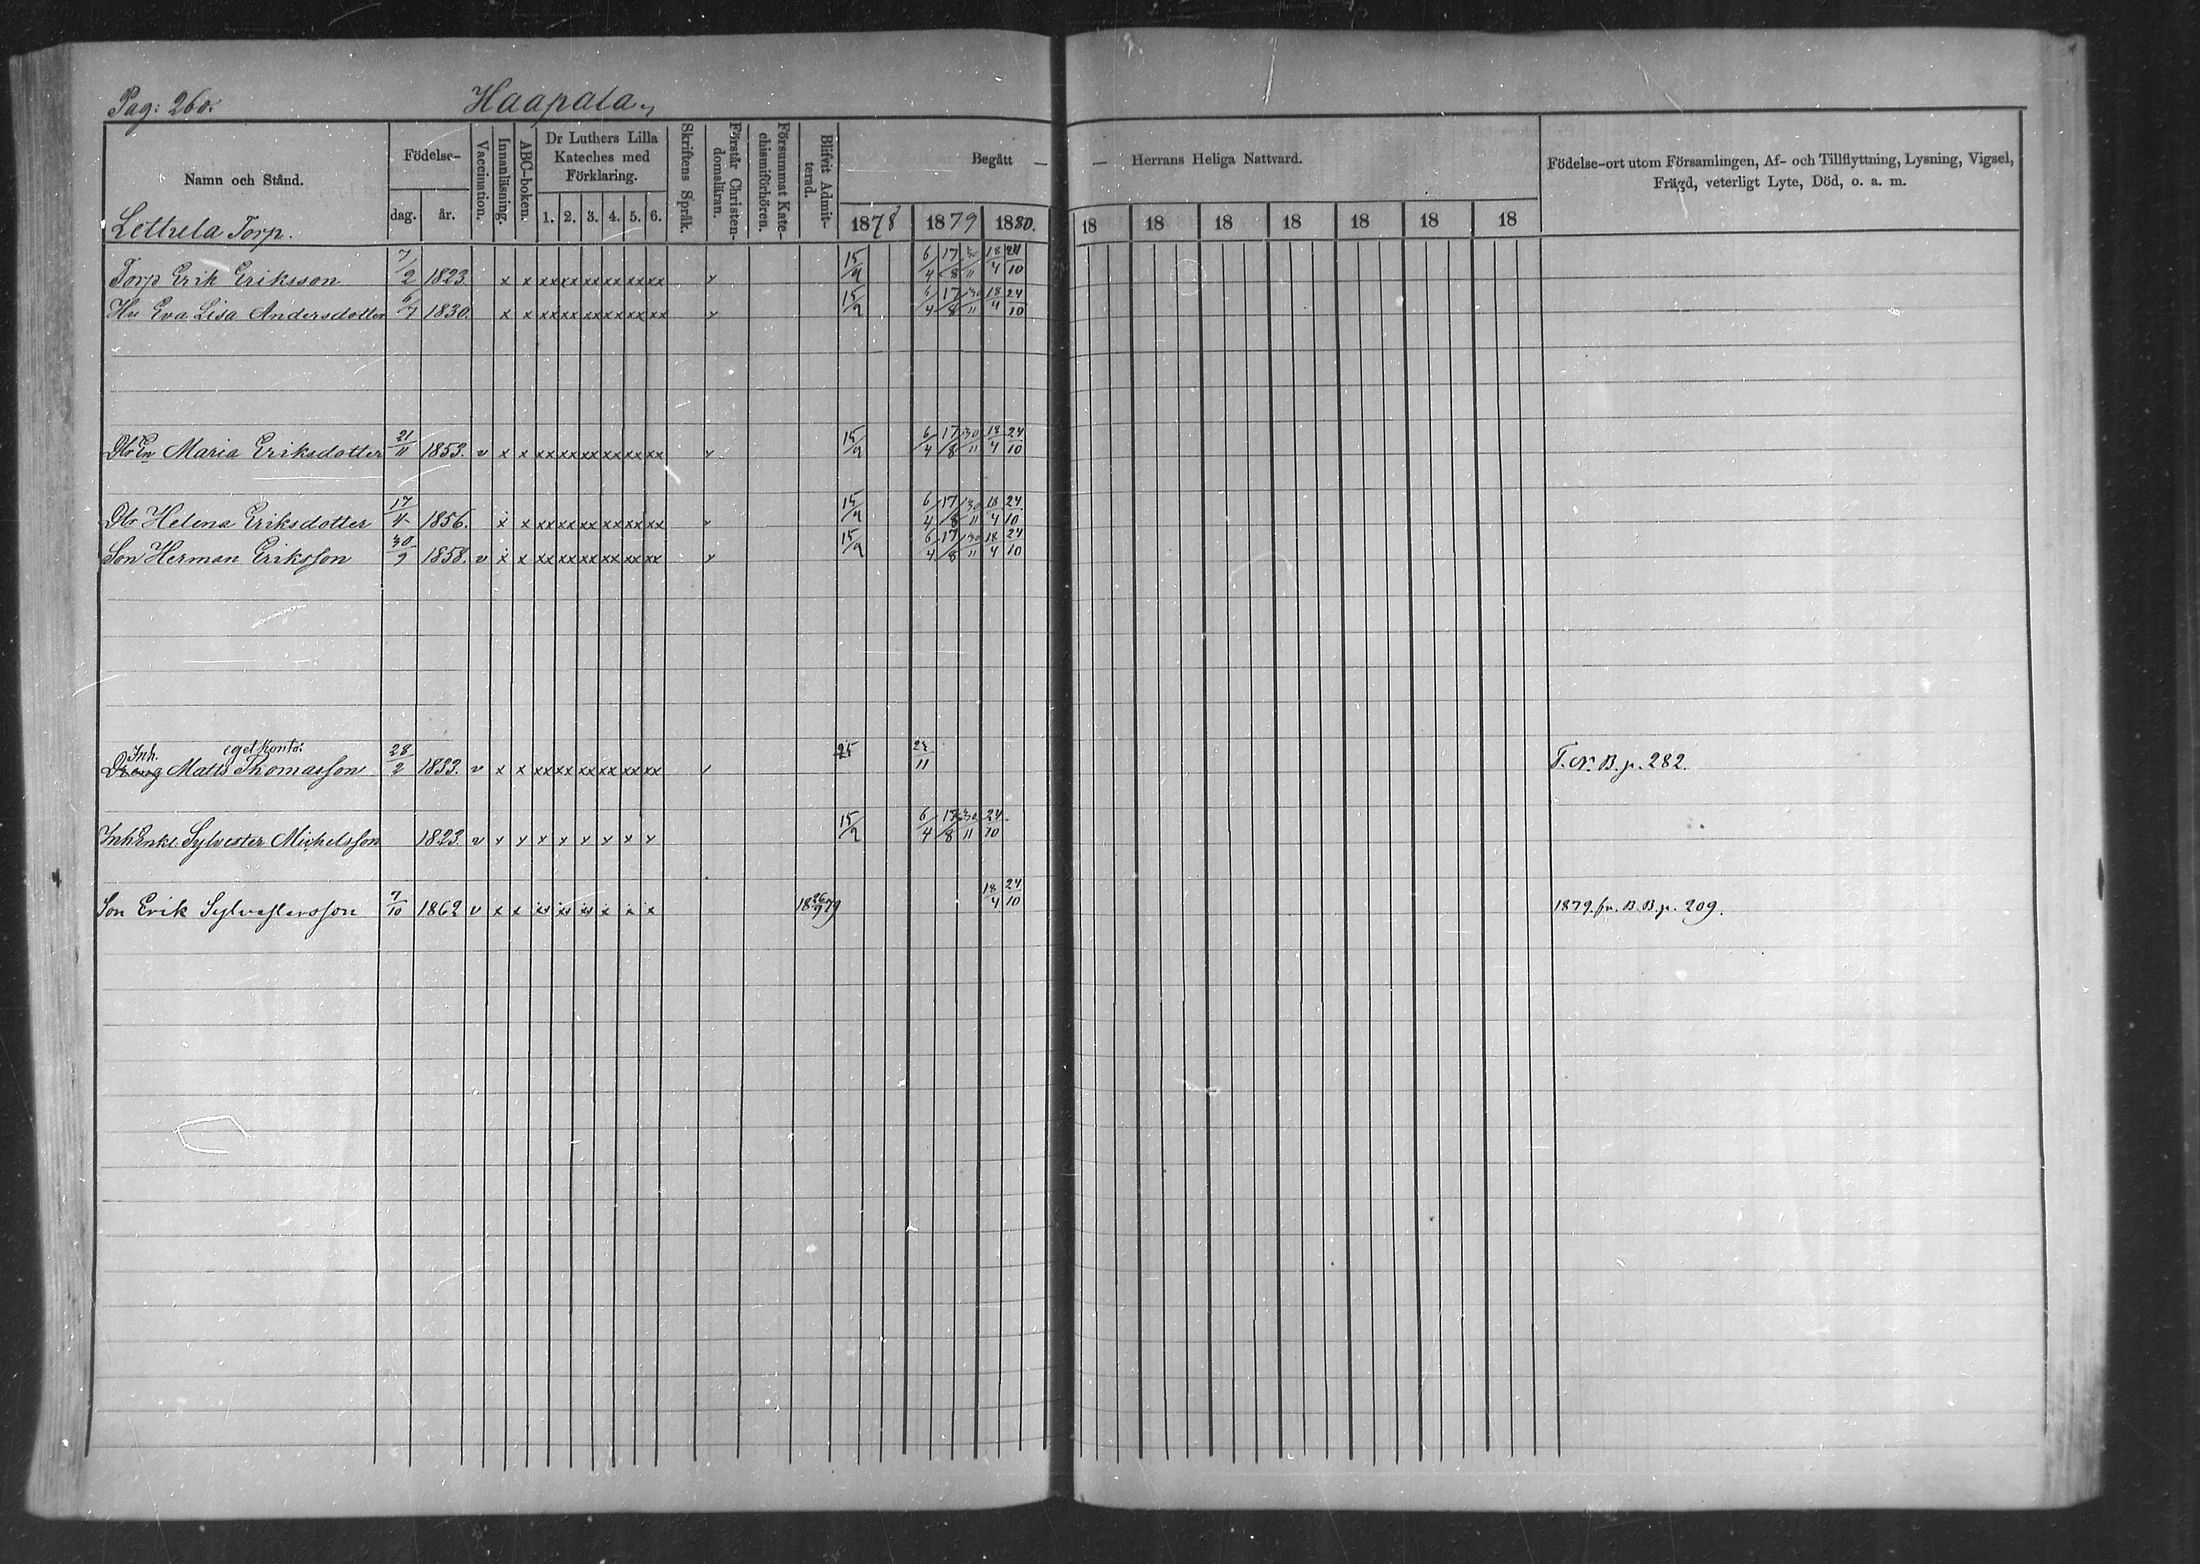 Pag: 260. Haapala
Namn och Stånd. Födelse- dag. år. Vaccination. Innanläsning. ABC-boken. Dr Luthers Lilla Kateches med Förklaring. 1. 2. 3. 4. 5. 6. Skriftens Språk. Förstår Christendomsläran. Försummat Katechismiförhören. Blifvit Admitterad. Begått — — Herrans Heliga Nattvard. Födelse-ort utom Församlingen, Af- och Tillflyttning, Lysning, Vigsel, Frägd, veterligt Lyte, Död, o. a. m.
1878 1879 1880. 18 18 18 18 18 18 18
Lettula Torp.
Torp Erik Eriksson 7/2 1823. x x xx xx xx xx xx xx x 15/9 6/4 17/8 30/11 18/4 24/10
Hu Eva Lisa Andersdotter 6/7 1830. x x xx xx xx xx xx xx x 15/9 6/4 17/8 30/11 18/4 24/10
Dtr Maria Eriksdotter 21/11 1853. v x x xx xx xx xx xx xx x 15/9 6/4 17/8 30/11 18/4 24/10
Dtr Helena Eriksdotter 17/4 1856. x x xx xx xx xx xx xx x 15/9 6/4 17/8 30/11 18/4 24/10
Son Herman Eriksson 30/9 1858. v x x xx xx xx xx xx xx x 15/9 6/4 17/8 30/11 18/4 24/10
Inh. eget Konto:
Dreng Matts Thomasson 28/2 1833. v x x xx xx xx xx xx xx T. N. B. p. 282.
Inh Enkl. Sylvester Michelsson 1823. v x x x x x x x x 15/9 6/4 17/8 30/11 24/10
Son Erik Sylvestersson 7/10 1862 v x x 18 26/9 79 18/4 24/10 1879. fr. B. B. p. 209.